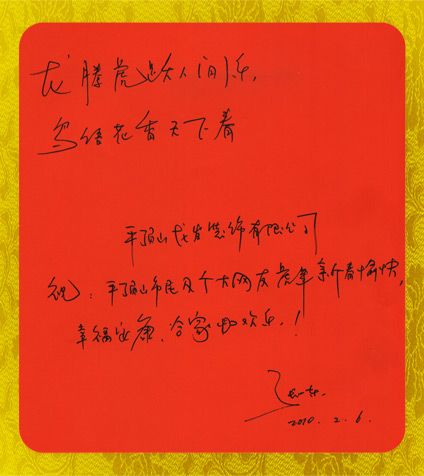 龙腾虎跃人间乐,
鸟语花香天下春
平顶山龙发装饰有限公司
祝:平顶山市民及个大网友虎年新春愉快,
幸福安康、合家欢乐!
2010.2.6.